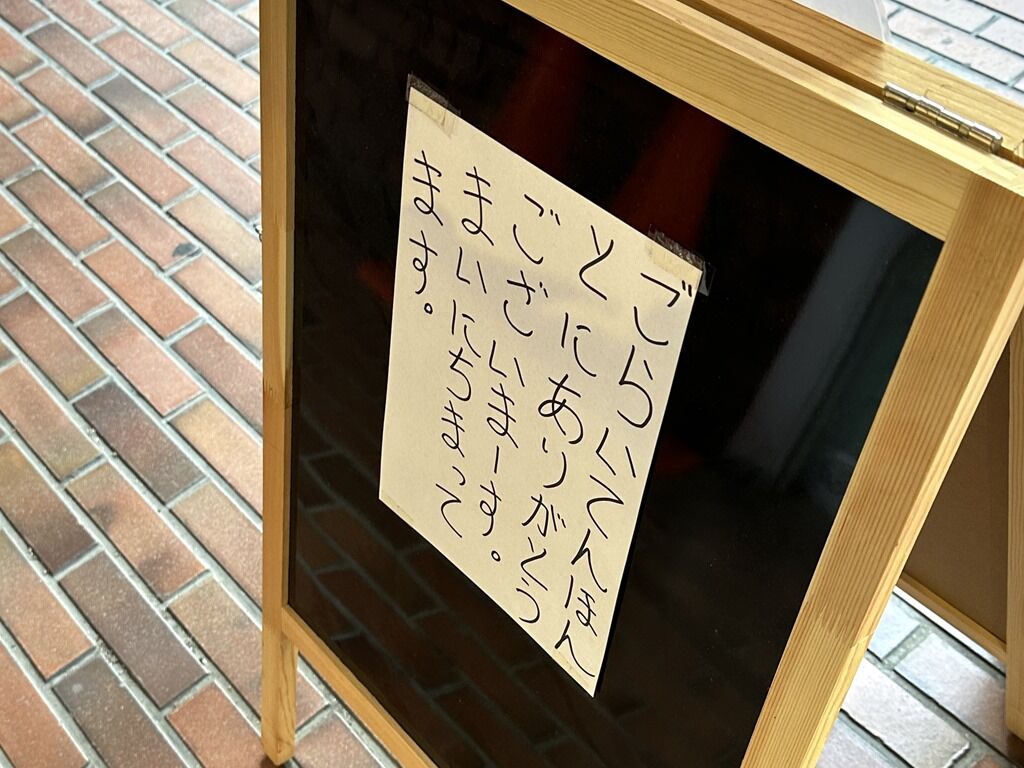 ごらいてんほん
とにありがとう
ございまーす。
まいにちまって
ます。